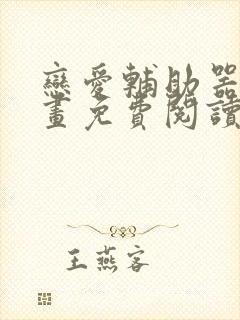 戀愛輔助器
畫免費閱讀
王燕客